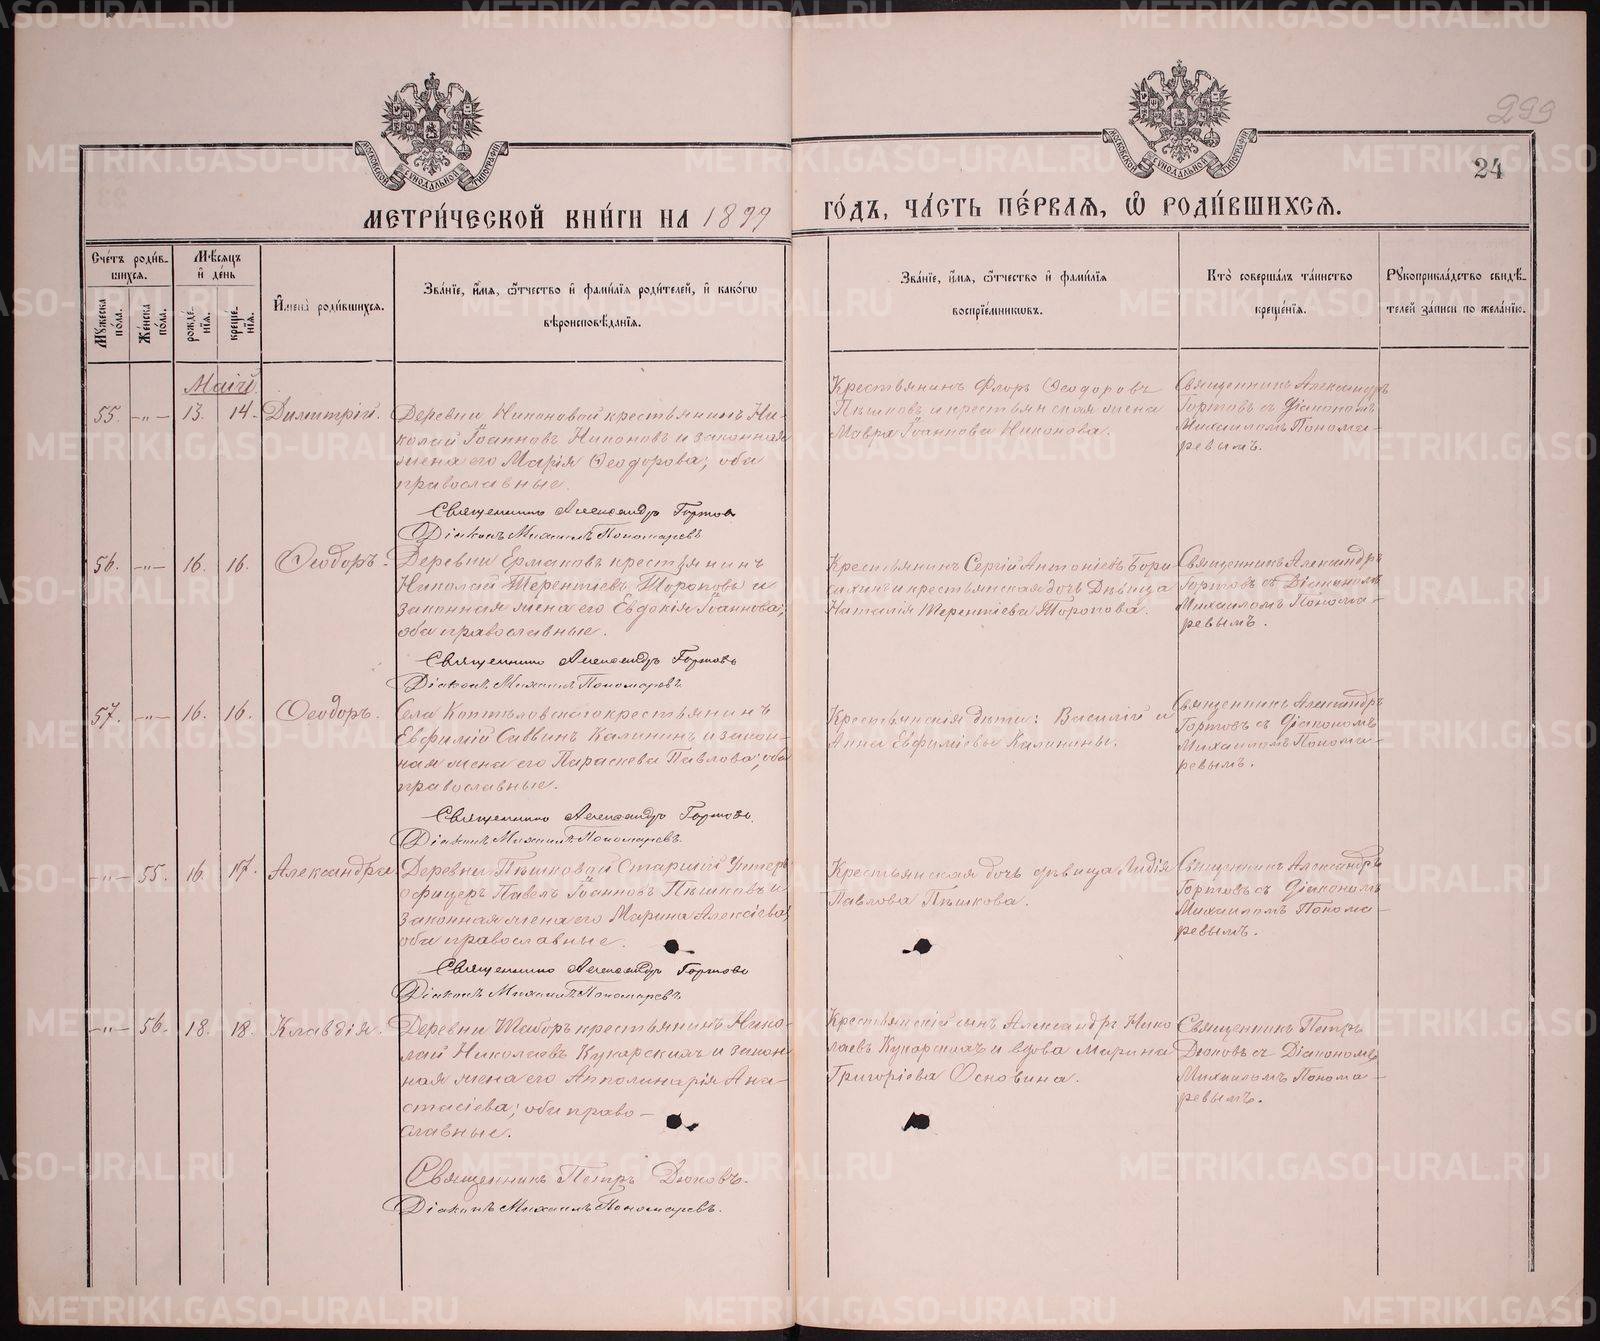 299
24
МОСКОВСКОЙ СѴНОДАЛЬНОЙ ТИПОГРАФІИ
МОСКОВСКОЙ СѴНОДАЛЬНОЙ ТИПОГРАФІИ
МЕТРИ́ЧЕСКОЙ КНИ́ГИ НА 1899 ГО́ДЪ, ЧА́СТЬ ПЕ́РВАѦ, Ѽ РОДИ́ВШИХСѦ.
Сче́тъ роди́в-
шихсѧ.
Мѣ́сѧцъ
и҆ де́нь
Му́жеска
по́ла.
Же́нска
по́ла.
рожде-
нїѧ.
креще-
нїѧ.
И҆мена̀ роди́вшихсѧ.
Зва́нїе, и҆́мѧ, ѻ҆́тчество и҆ фами́лїѧ роди́телей, и҆ како́гѡ
вѣроисповѣ́данїѧ.
Зва́нїе, и҆́мѧ, ѻ҆́тчество и҆ фами́лїѧ
воспрїе́мникѡвъ.
Кто̀ соверша́лъ та́инство
креще́нїѧ.
Рꙋкоприкла́дство свидѣ́-
телей за́писи по жела́нїю.
Май
55. -„- 13. 14. Димитрій.
Деревни Никоновой крестьянинъ Ни-
колай Іоанновъ Никоновъ и законная
жена его Марія Ѳеодорова; оба
православные.
Священникъ Александръ Гортовъ
Діаконъ Михаилъ Пономаревъ
Крестьянинъ Флоръ Ѳеодоровъ
Пѣшковъ и крестьянская жена
Мавра Іоаннова Никонова.
Священникъ Александръ
Гортовъ съ Діакономъ
Михаиломъ Понома-
ревымъ.
56. -„- 16. 16. Ѳеодоръ.
Деревни Ермаковъ крестьянинъ
Николай Терентіевъ Тороповъ и
законная жена его Евдокія Іоаннова;
оба православные.
Священникъ Александръ Гортовъ
Діаконъ Михаилъ Пономаревъ
Крестьянинъ Сергій Антоніевъ Бори
сихинъ и крестьянская дочь дѣвица
Наталія Терентіева Торопова.
Священникъ Александръ
Гортовъ съ Діакономъ
Михаиломъ Понома-
ревымъ.
57. -„- 16. 16. Ѳеодоръ.
Села Коптѣловскаго крестьянинъ
Евфимій Саввинъ Калининъ и закон-
ная жена его Параскева Павлова; оба
православные.
Священникъ Александръ Гортовъ.
Діаконъ Михаилъ Пономаревъ.
Крестьянскія дѣти: Василій и
Анна Евфиміевы Калинины.
Священникъ Александръ
Гортовъ съ Діакономъ
Михаиломъ Понома-
ревымъ.
-„- 55. 16. 17. Александра
Деревни Пѣшковой Старшій Унтеръ
офицеръ Павелъ Іоанновъ Пѣшковъ и
законная жена его Марина Алексіева;
оба православные.
Священникъ Александръ Гортовъ
Діаконъ Михаилъ Пономаревъ
Крестьянская дочь дѣвица Лидія
Павлова Пѣшкова.
Священникъ Александръ
Гортовъ съ Діакономъ
Михаиломъ Понома-
ревымъ.
-„- 56. 18. 18. Клавдія.
Деревни Таборъ крестьянинъ Нико-
лай Николаевъ Кукарскихъ и закон-
ная жена его Апполинарія Ана-
стасіева; оба право-
славные.
Священникъ Петръ Дюковъ.
Діаконъ Михаилъ Пономаревъ.
Крестьянскій сынъ Александръ Нико
лаевъ Кукарскихъ и вдова Марина
Григоріева Основина.
Священникъ Петръ
Дюковъ съ Діакономъ
Михаиломъ Понома-
ревымъ.
METRIKI.GASO-URAL.RU